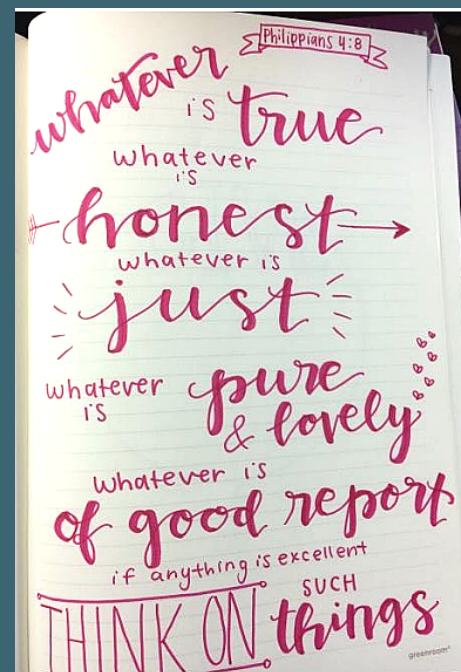 Philippians 4:8
whatever
is true
whatever
is
honest
whatever is
just
whatever
is
pure
& lovely
whatever is
of good report
if anything is excellent
THINK ON SUCH things
greenroom